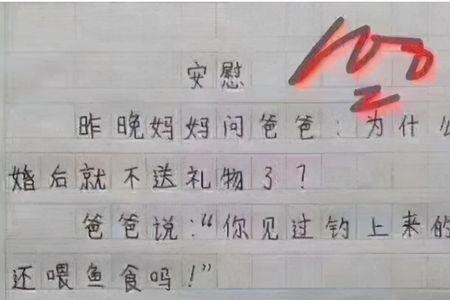 100
安慰
昨晚妈妈问爸爸：为什么
婚后就不送礼物了？
爸爸说："你见过钓上来的
还喂鱼食吗！"